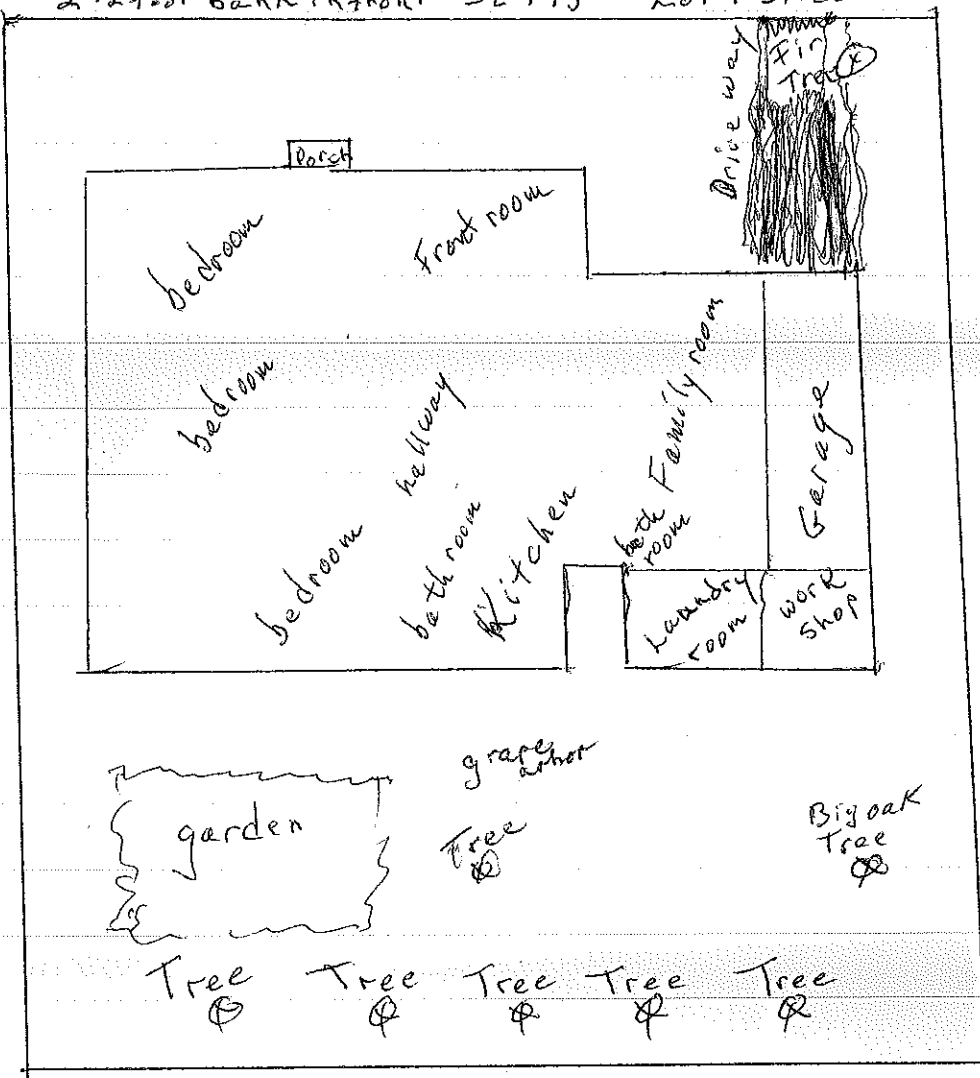 Fir
Tree
Drive way
Porch
bedroom
Front room
bedroom
hallway
Family room
Garage
bedroom
bathroom
Kitchen
bath
room
Laundry
room
work
shop
grape
arbor
garden
Tree
Big oak
Tree
Tree
Tree
Tree
Tree
Tree